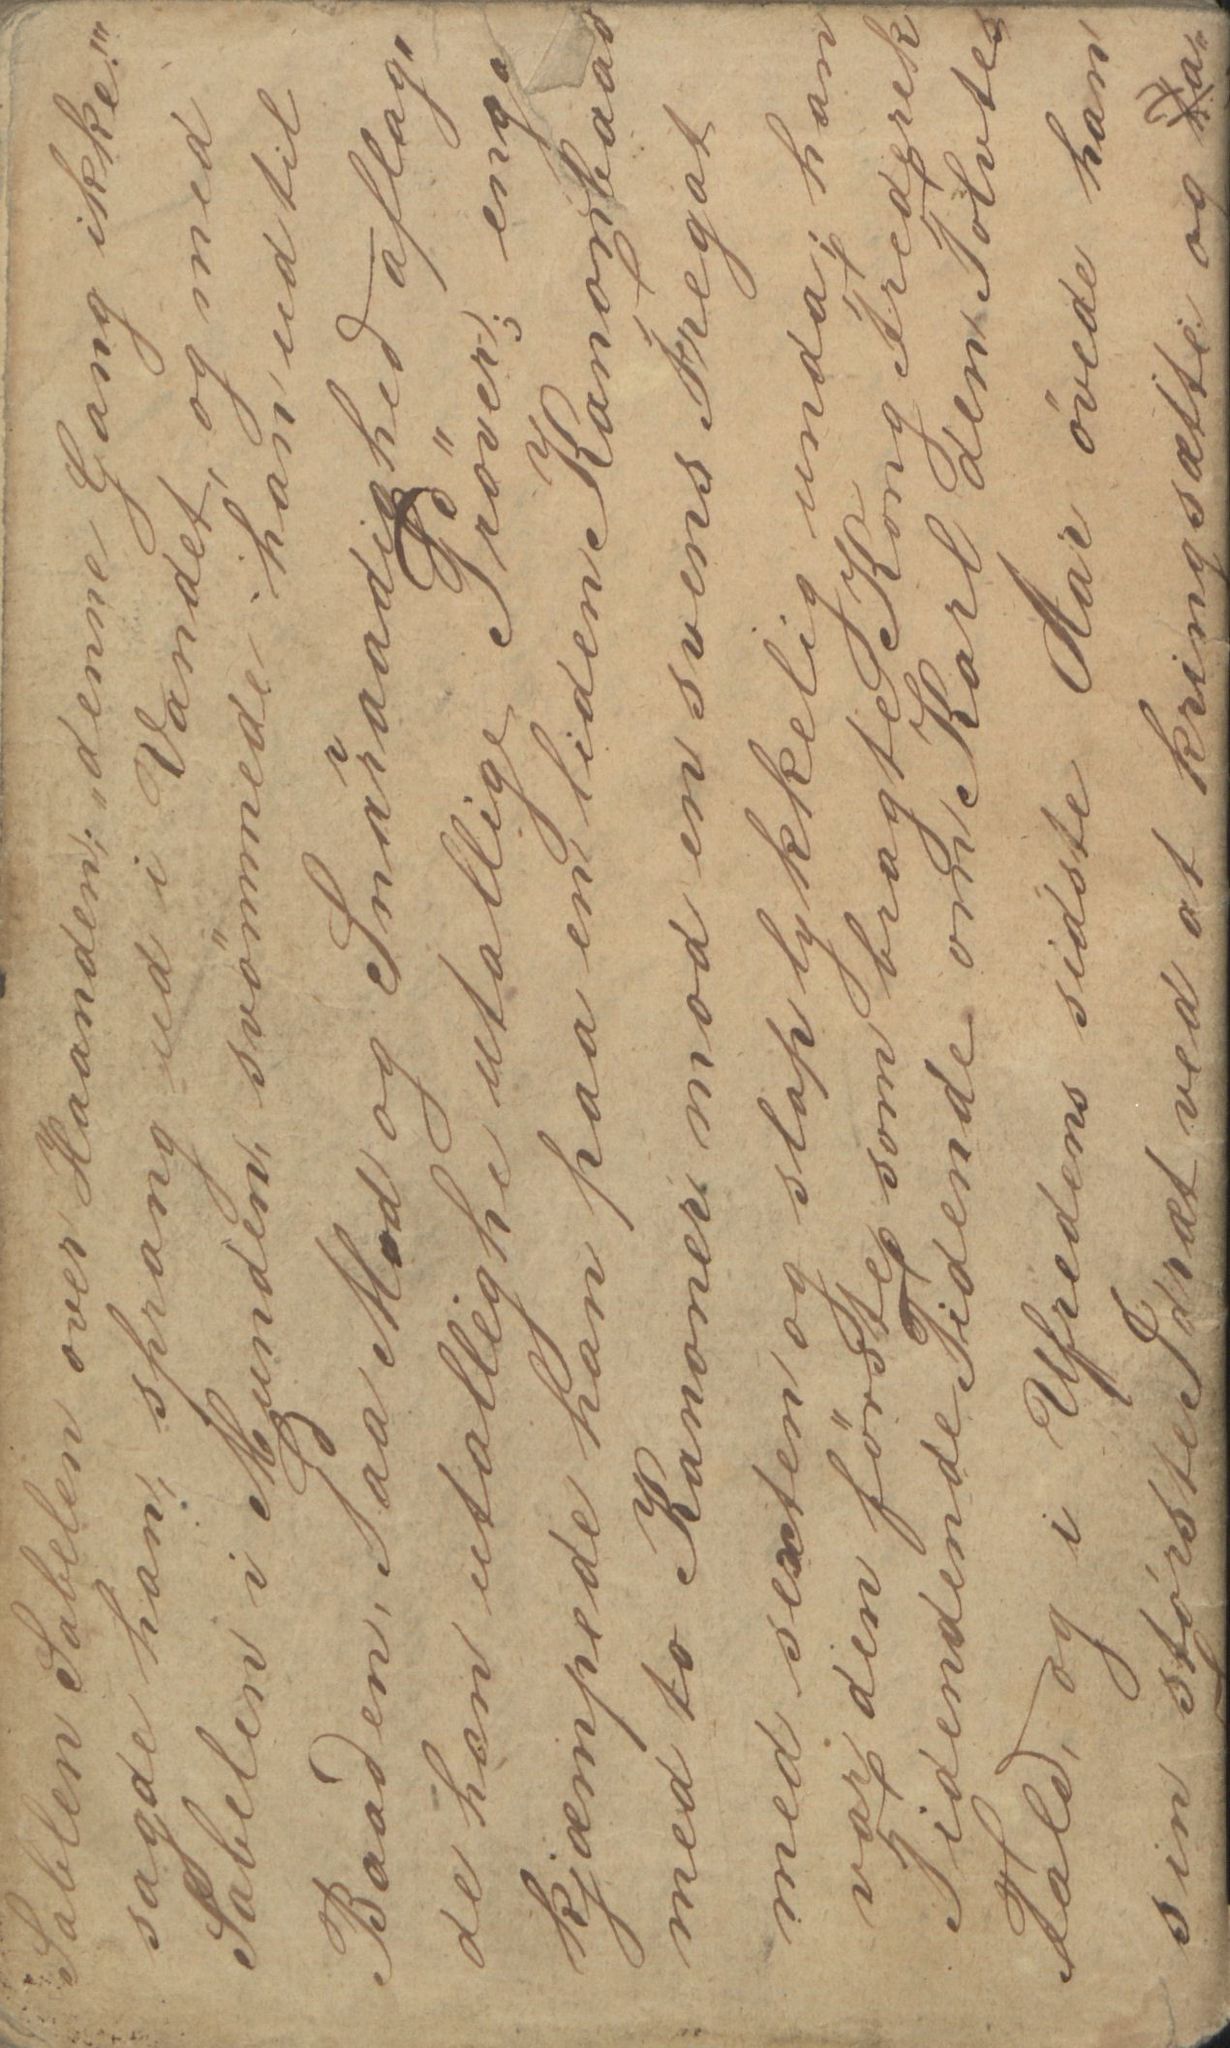 Sablen Sabelen over Haanden; „denne Gang ikke!"
sagde han, sprang ud i Vandet, og med
Sabelen i Munden, svömmede han ud til
Baaden. Paa Mod og Snarraadighed aflag"
de han utallighe utallige Pröver; eng"
kjæmpede han paa en liden Kanonbaad
med to Kanoner mod en svensk Fregat
med sexten og slap lykkelig unda; han
var den förste, som bragte Kong Fredrek
Tidende Tidende om Karl den Tolvtes
Fald, og i Ufredens sidste Aar övede han
sin störste Idræt ved at kringsætte og